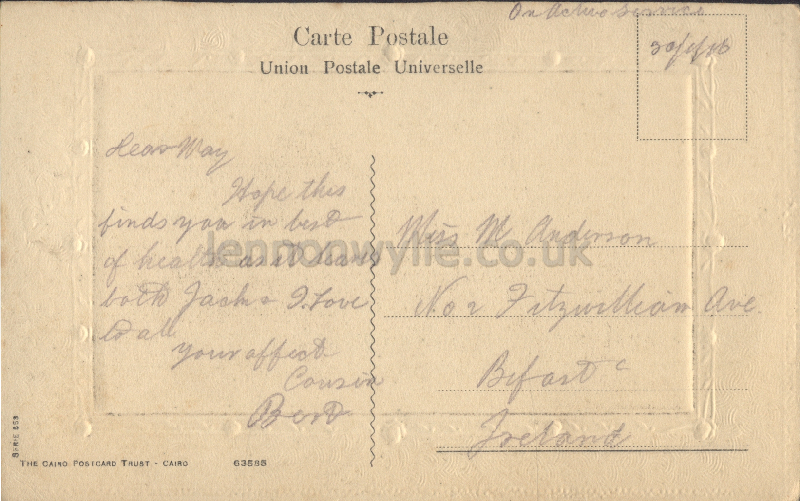 On Active Service
Carte Postale
Union Postale Universelle
30/4/16
Dear May
Hope this
finds you in best
of health as it leaves
both Jack & I. Love
to all
your affect
Cousin
Bert
Miss M Anderson
No 2 Fitzwilliam Ave.
Befast
Ireland
lennonwylie.co.uk
SERIE 659
THE CAIRO POSTCARD TRUST - CAIRO 63588